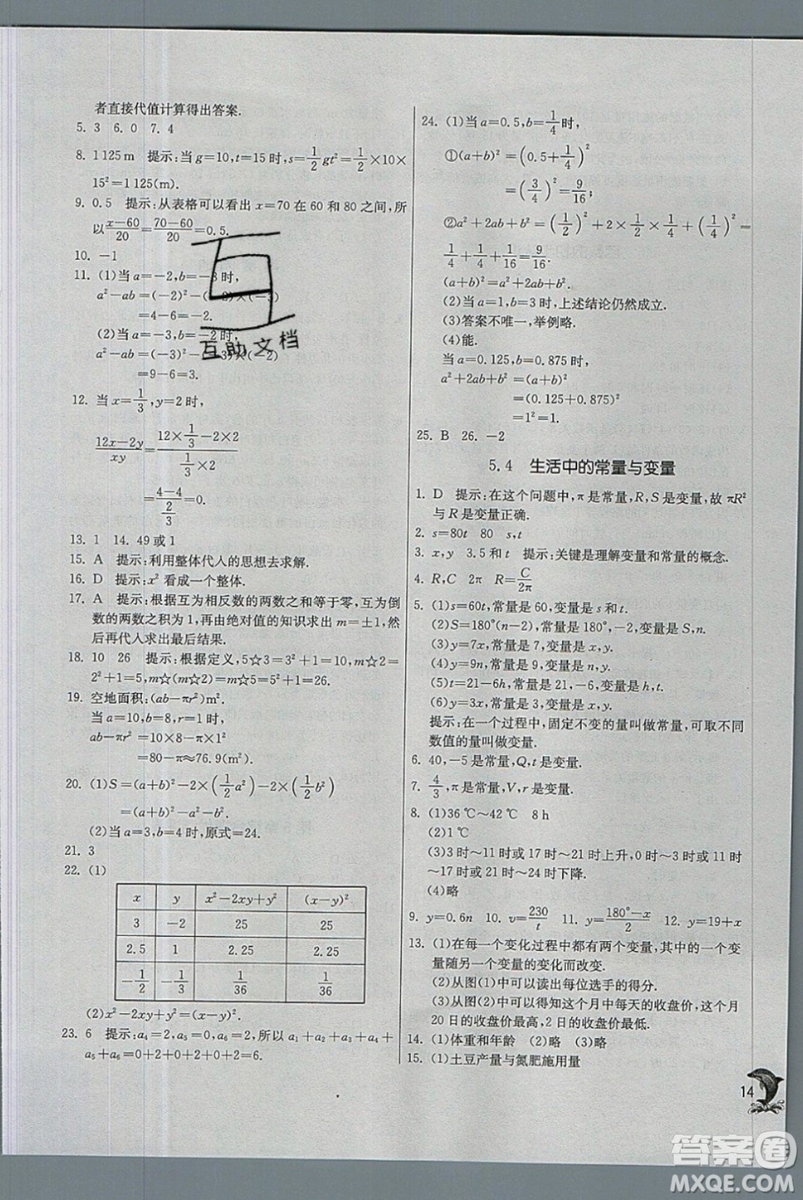 者直接代值计算得出答案.
5. 3 6. 0 7. 4
8. 1 125 m 提示:当 g=10,t=15 时,s=\frac{1}{2}gt²=\frac{1}{2}×10×
15²=1 125(m).
9. 0.5 提示:从表格可以看出 x=70 在 60 和 80 之间,所
以\frac{x-60}{20}=\frac{70-60}{20}=0.5.
10. -1
11. (1)当 a=-2,b=-3 时,
a²-ab=(-2)²-(-2)×(-3)
=4-6=-2.
(2)当 a=-3,b=-2 时,
a²-ab=(-3)²-(-3)×(-2)
=9-6=3.
互助文档
12. 当 x=\frac{1}{3},y=2 时,
\frac{12x-2y}{xy}=\frac{12×\frac{1}{3}-2×2}{\frac{1}{3}×2}
=\frac{4-4}{\frac{2}{3}}=0.
13. 1 14. 49 或 1
15. A 提示:利用整体代人的思想去求解.
16. D 提示:x²看成一个整体.
17. A 提示:根据互为相反数的两数之和等于零,互为倒
数的两数之积为 1,再由绝对值的知识求出 m=±1,然
后再代人求出最后结果.
18. 10 26 提示:根据定义,5☆3=3²+1=10,1☆2=
2²+1=5,m☆(m☆2)=m☆5=5²+1=26.
19. 空地面积:(ab-πr²)m².
当 a=10,b=8,r=1 时,
ab-πr²=10×8-π×1²
=80-π≈76.9(m²).
20. (1)S=(a+b)²-2×(\frac{1}{2}a²)-2×(\frac{1}{2}b²)
=(a+b)²-a²-b².
(2)当 a=3,b=4 时,原式=24.
21. 3
22. (1)
x y x²-2xy+y² (x-y)²
3 -2 25 25
2.5 1 2.25 2.25
-\frac{1}{2} -\frac{1}{3} \frac{1}{36} \frac{1}{36}
(2)x²-2xy+y²=(x-y)²
23. 6 提示:a₄=2,a₅=0,a₆=2,所以 a₁+a₂+a₃+a₄+
a₅+a₆=0+2+0+2+0+2=6.
24. (1)当 a=0.5,b=\frac{1}{4}时,
①(a+b)²=(0.5+\frac{1}{4})²
=(\frac{3}{4})²=\frac{9}{16}.
②a²+2ab+b²=(\frac{1}{2})²+2×\frac{1}{2}×\frac{1}{4}+(\frac{1}{4})²=
\frac{1}{4}+\frac{1}{4}+\frac{1}{16}=\frac{9}{16}.
(a+b)²=a²+2ab+b².
(2)当 a=2,b=3 时,上述结论仍然成立.
(3)答案不唯一,举例略.
(4)能.
当 a=0.125,b=0.875 时,
a²+2ab+b²=(a+b)²
=(0.125+0.875)²
=1²=1.
25. B 26. -2
5.4 生活中的常量与变量
1. D 提示:在这个问题中,π 是常量,R,S 是变量,故 πR²
与 R 是变量正确.
2. s=80t 80 s,t
3. x,y 3.5 和 t 提示:关键是理解变量和常量的概念.
4. R,C 2π R=\frac{C}{2π}
5. (1)s=60t,常量是 60,变量是 s 和 t.
(2)S=180°(n-2),常量是 180°,-2,变量是 S,n.
(3)y=7x,常量是 7,变量是 x,y.
(4)y=9n,常量是 9,变量是 n,y.
(5)t=21-6h,常量是 21,-6,变量是 h,t.
(6)y=3x,常量是 3,变量是 x,y.
提示:在一个过程中,固定不变的量叫做常量,可取不同
数值的量叫做变量.
6. 40,-5 是常量,Q,t 是变量.
7. \frac{4}{3},π 是常量,V,r 是变量.
8. (1)36 ℃～42 ℃ 8 h
(2)1 ℃
(3)3 时～11 时或 17 时～21 时上升;0 时～3 时或
11 时～17 时或 21 时～24 时下降.
(4)略
9. y=0.6n 10. v=\frac{230}{t} 11. y=\frac{180°-x}{2} 12. y=19+x
13. (1)在每一个变化过程中都有两个变量,其中的一个变
量随另一个变量的变化而改变.
(2)从图(1)中可以读出每位选手的得分.
(3)从图(2)中可以读出这个月中每天的收盘价,这个月
20 日的收盘价最高,2 日的收盘价最低.
14. (1)体重和年龄 (2)略
15. (1)土豆产量与氮肥施用量
14
答案圈
MXQE.COM